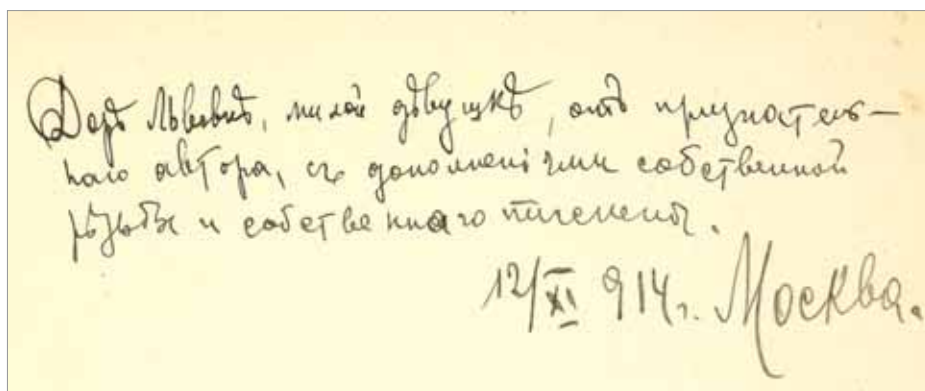 Дорѣ Львовнѣ, милой дѣвушкѣ, отъ признатель-
наго автора, съ дополненіями собственной
рѣзьбы и собственнаго тисненія.
12/XI 914 г. Москва.